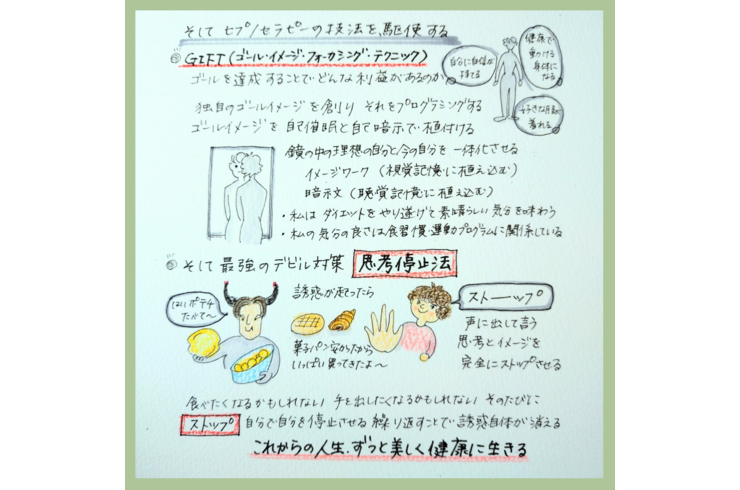 そして セブ/セラピーの技法を、駆使する
GIFT(ゴール・イメージ・フォーカシング・テクニック)
ゴールを達成することでどんな利益があるのか
自分に自信が
持てる
健康で
動ける
身体に
なる
好きな服が
着れる
独自のゴールイメージを創り それをプログラミングする
ゴールイメージを 自己催眠と自己暗示で植付ける
鏡の中の理想の自分と今の自分を 一体化させる
イメージワーク (視覚記憶に植え込む)
暗示文 (聴覚記憶に植え込む)
・私は ダイエットをやり遂げて素晴らしい気分を味わう
・私の気分の良さは食習慣・運動プログラムに関係している
そして 最強のデビル対策 思考停止法
はいポテチ
たべて〜
誘惑が起ったら
菓子パン安かったから
いっぱい買ってきたよ〜
ストーップ
声に出して言う
思考とイメージを
完全にストップさせる
食べたくなるかもしれない 手を出したくなるかもしれない そのたびに
ストップ 自分で自分を停止させる 繰り返すことで誘惑自体が消える
これからの人生、ずっと美しく健康に生きる